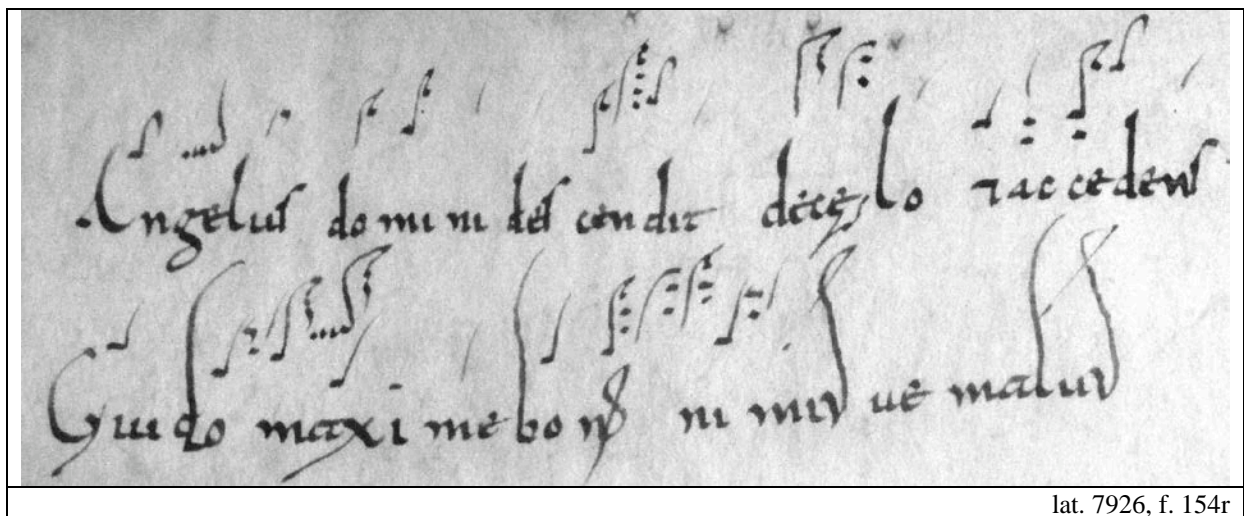 Angelus domini descendit decęlo ⁊ accedens
Guido maxime bonus nimis ue malus
lat. 7926, f. 154r